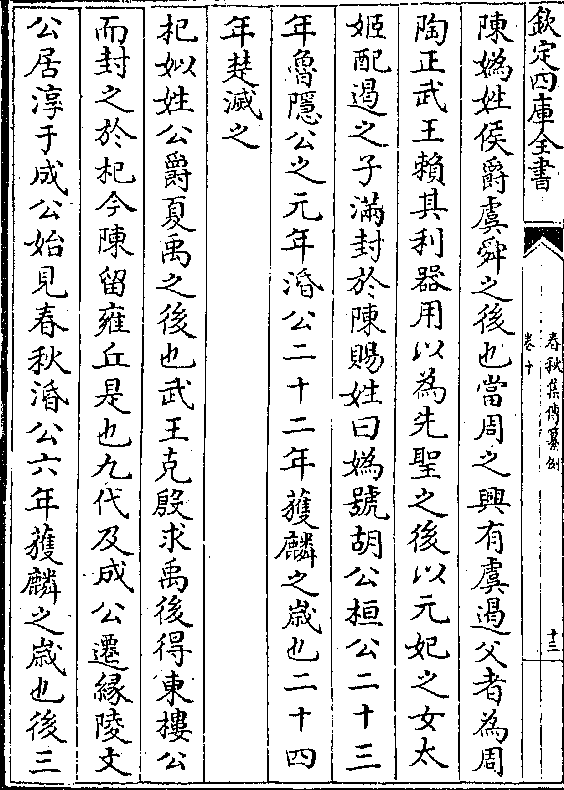 欽定四庫全書
春秋集傳纂例
卷十
十三
陳媯姓侯爵虞舜之後也當周之興有虞遏父者為周
陶正武王賴其利器用以為先聖之後以元妃之女太
姬配遏之子滿封於陳賜姓曰媯號胡公桓公二十三
年魯隱公之元年湣公二十二年蒦麟之歳也二十四
年楚滅之
杞姒姓公爵夏禹之後也武王克殷求禹後得東樓公
而封之於杞今陳留雍丘是也九代及成公遷緣陵文
公居淳于成公始見春秋湣公六年蒦麟之歳也後三